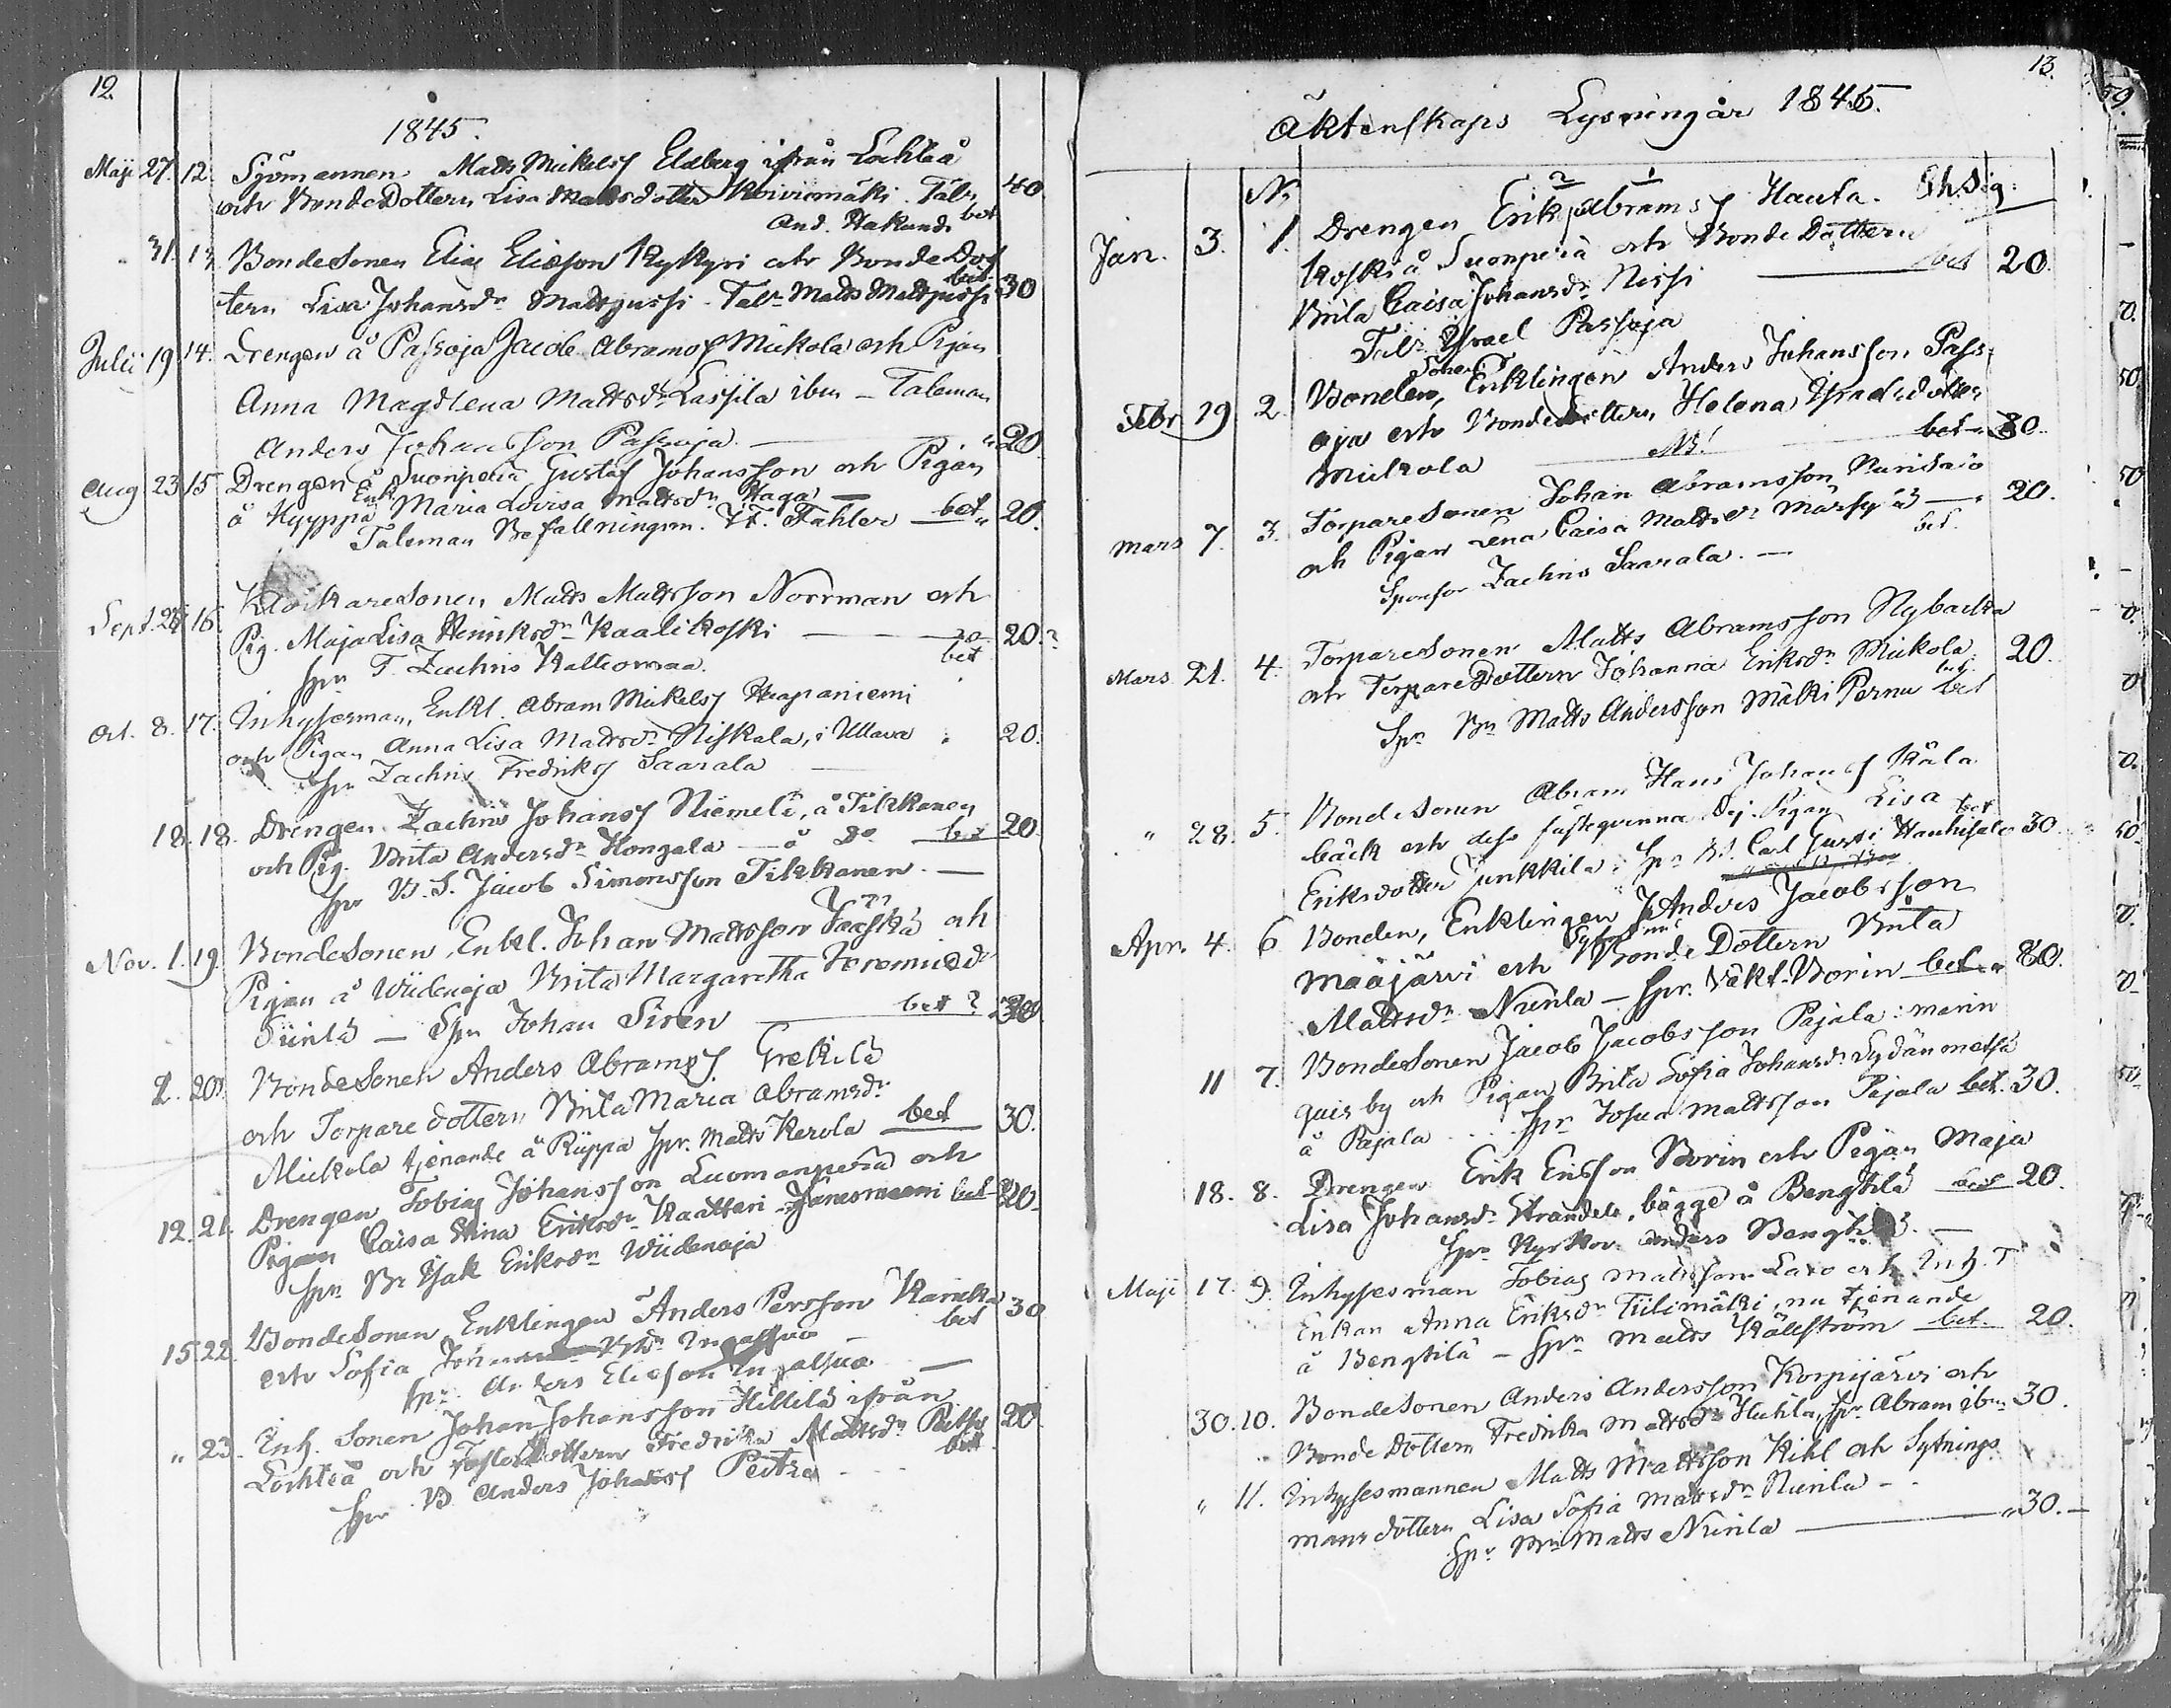 12.
1845.
Maji 27. 12. Sjömannen Matts Mickelss Eldberg ifrån Lochteå
och BondeDottern Lisa Mattsdotter Koivumäki. Talm 40.
And. Hakunds bet
" 31. 13. BondeSonen Elias Eliasson Kykyri och BondeDot
tern Lisa Johansdr Mattjussi. Talm Matts Mattjussi bet 30
Julii 19 14. Drengen å Passoja Jacob Abramss Mickola och Pigan
Anna Magdlena Mattsdr Lassila ibm – Taleman
Anders Johansson Passoja — " 20
Aug 23 15 Drengen å Suonperä Gustaf Johansson och Pigan
å Hyyppä Enk. Maria Lovisa Mattsdr Haga —
Taleman Befallningsm. Fahler bet " 20.
Sept. 16 KlåckareSonen Matts Mattsson Norrman och
Pig. Maja Lisa Henriksdr Kaalikoski — 20.?
Spr T. Zachris Kalliomaa. bet
Oct. 8. 17. Inhysesman, Enkl. Abram Mickelss Haapaniemi
och Pigan Anna Lisa Mattsdr Niskala, i Ullava " 20.
Spr Zachris Fredrikss Saarala
18. 18. Drengen Zachris Johanss Niemelä, å Tikkanen
och Pig. Brita Andersdr Hongala — å Do bet 20
Spr B. S. Jacob Simonsson Tikkanen. —
Nov. 1. 19. BondeSonen, Enkl. Johan Mattsson Jääskä och
Pigan å Wiidenoja Brita Margaretha Jeremiædr
Siirilä — Spr Johan Siren bet ? 30
2. 20. BondeSonen Anders Abramss Grekilä
och Torparedottern Brita Maria Abramsdr
Mickola tjenande å Riippa Spr. Matts Kerola bet 30.
12. 21. Drengen Tobias Johansson Luomanperä och
Pigan Caisa Stina Eriksdr Kaatteri Jänesniemi bet 20
Spr Br Isak Eriksdr Wiidenoja
15 22. BondeSonen Enklingen Anders Persson Karicka 30
och Sofia Ingalsuo bet
Spr. Anders Eliesson Ingalsuo —
" 23. Inh. Sonen Johan Johansson Hillilä ifrån
Lochteå och FosterDottern Fredrika Mattsdr Peitso 20
Spr B Anders Johanss Peitso bet
13.
Äktenskaps Lysningar 1846.
No 2 1 Sh. Sig:
Jan. 3. 1. Drengen Erik Abramss Hauta.
koski å Suonperä och BondeDottern
Brita Caisa Johansdr Nissi — bet 20.
Talr Israel Passoja
Febr 19 2. Bonden, Sonen Enklingen Anders Johansson Pass-
oja och BondeDottern Helena Israelsdotter
Mickola NB! bet 30.
Mars 7. 3. TorpareSonen Johan Abramsson Nurisalo
och Pigan Lena Caisa Mattsdr Märsylä — " 20.
Sponsor Zachris Saarala. — bet.
Mars 21. 4. TorpareSonen Matts Abramsson Nybacka
och TorpareDottern Johanna Eriksdr Mickola. 20.
Spr Br Matts Andersson Mäki Pernu bet
" 28. 5. BondeSonen Abram Hans Johanss Kåla
bäck och dess fästeqvinna Dej. Pigan Lisa
Eriksdotter Junkkila: Spr Bd. Carl Gust: Hauhisalo bet 30.
Apr. 4. 6 Bonden, Enklingen Anders Jacobsson
Määjärvi och BondeDottern Brita
Mattsdr Niinla — Spr. Vakt. Borin bet. " 80.
11 7. BondeSonen Jacob Jacobsson Pajala i marin
quis by och Pigan Brita Sofia Johansdr Sydänmetsä
å Pajala . . . . Spr Josua Mattsson Pajala bet. 30.
18. 8. Drengen Erik Ericsson Borin och Pigan Maja
Lisa Johansdr Strandell, bägge å Bengtilä bet 20.
Spr Kyrkov. Anders Bengtilä. —
Maji 17. 9. Inhysesman Tobias Mattsson Laxo och Inh. T
Enkan Anna Eriksdr Tiilimäki, nu tjenande
å Bengtilä – Spr Matts Källström bet. 20.
30. 10. BondeSonen Anders Andersson Korpijärvi och
BondeDottern Fredrika Mattsdr Huhta, Spr. Abram ibm 30.
" 11. Inhysesmannen Matts Mattsson Kihl och Sytnings
mans dottern Lisa Sofia Mattsdr Niinla - -
Spr Br Matts Niinla — " 30. —